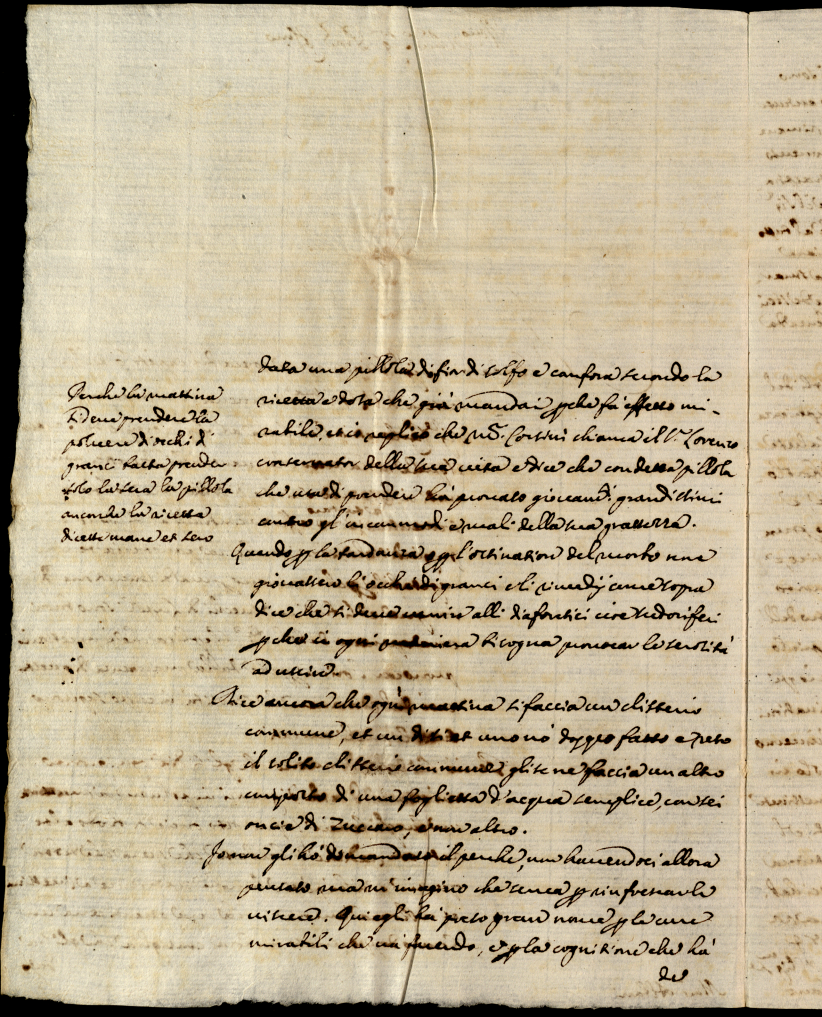 Perche la mattina
si deve prendere la
polvere d'ochi di
granci basta prender
solo la sera la pillola
ancorche la ricetta
dicesse mane et sero
data una pillola di fior di solfo e canfora secondo la
ricetta e dose che già mandai p che fà effetto mi-
rabile, et io replico che Corsini chiama il Lorenzo
conservator della sua vita e dice che con detta pillola
che usa di prendere hà provato giovam.ti grandissimi
contro gl'incommodi e mali della sua grassezza.
Quando p la tardanza ò p l'ostination del morbo non
giovassero li occhi di granci et li rimedij come sopra
dice che si deve venire alli diaforetici cioè sudoriferi
p che in ogni maniera bisogna provocar le serosità
ad uscire.
Dice ancora che ogni mattina si faccia un clisterio
commune, et un di si et uno nò doppo fatto e reso
il solito clisterio commune gli se ne faccia un altro
composto di una foglietta d'acqua semplice, con sei
oncie di Zuccaro, e non altro.
Io non gli hò domandato il perche, non havendoci allora
pensato, ma m'imagino che serva p rinfrescar le
viscere. Qui egli hà preso gran nome p le cure
mirabili che và facendo, e p la cognitione che hà
de